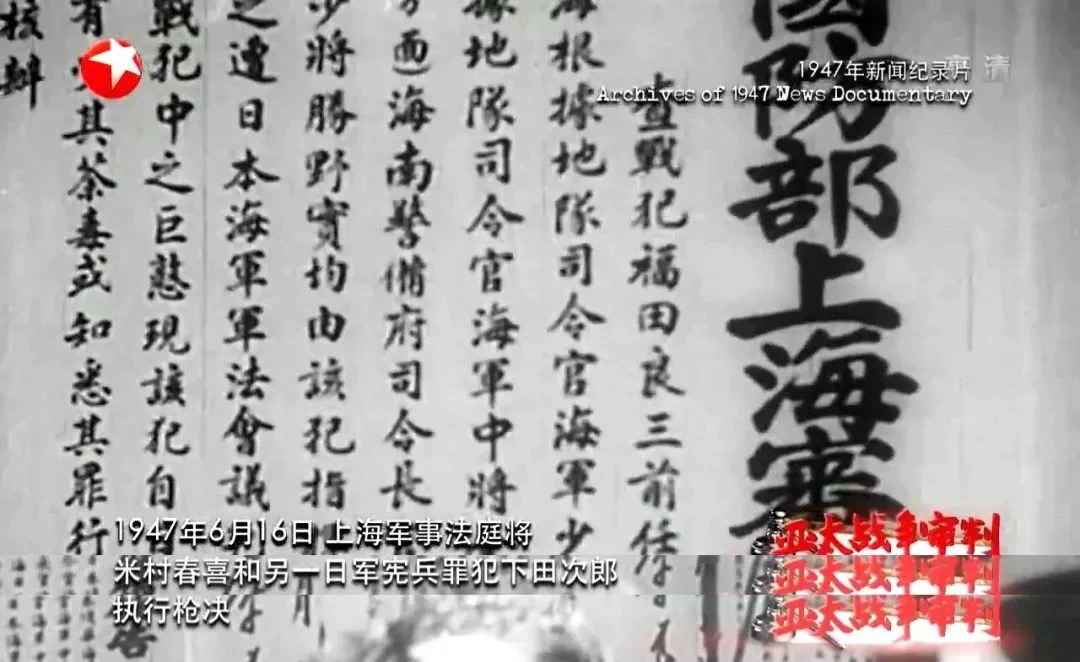 1947年新闻纪录片
Archives of 1947 News Documentary
國防部上海審
查戰犯福田良三前任
海根據地隊司令官海軍少
據地隊司令官海軍中將
方面海南警備府司令長
少將勝野實均由該犯指
之遭日本海軍軍法會議
戰犯中之巨憝現該犯自
有其荼毒或知悉其罪行
核辦
1947年6月16日 上海军事法庭将
米村春喜和另一日军宪兵罪犯下田次郎
执行枪决
亚太战争审判
亚太战争审判
亚太战争审判